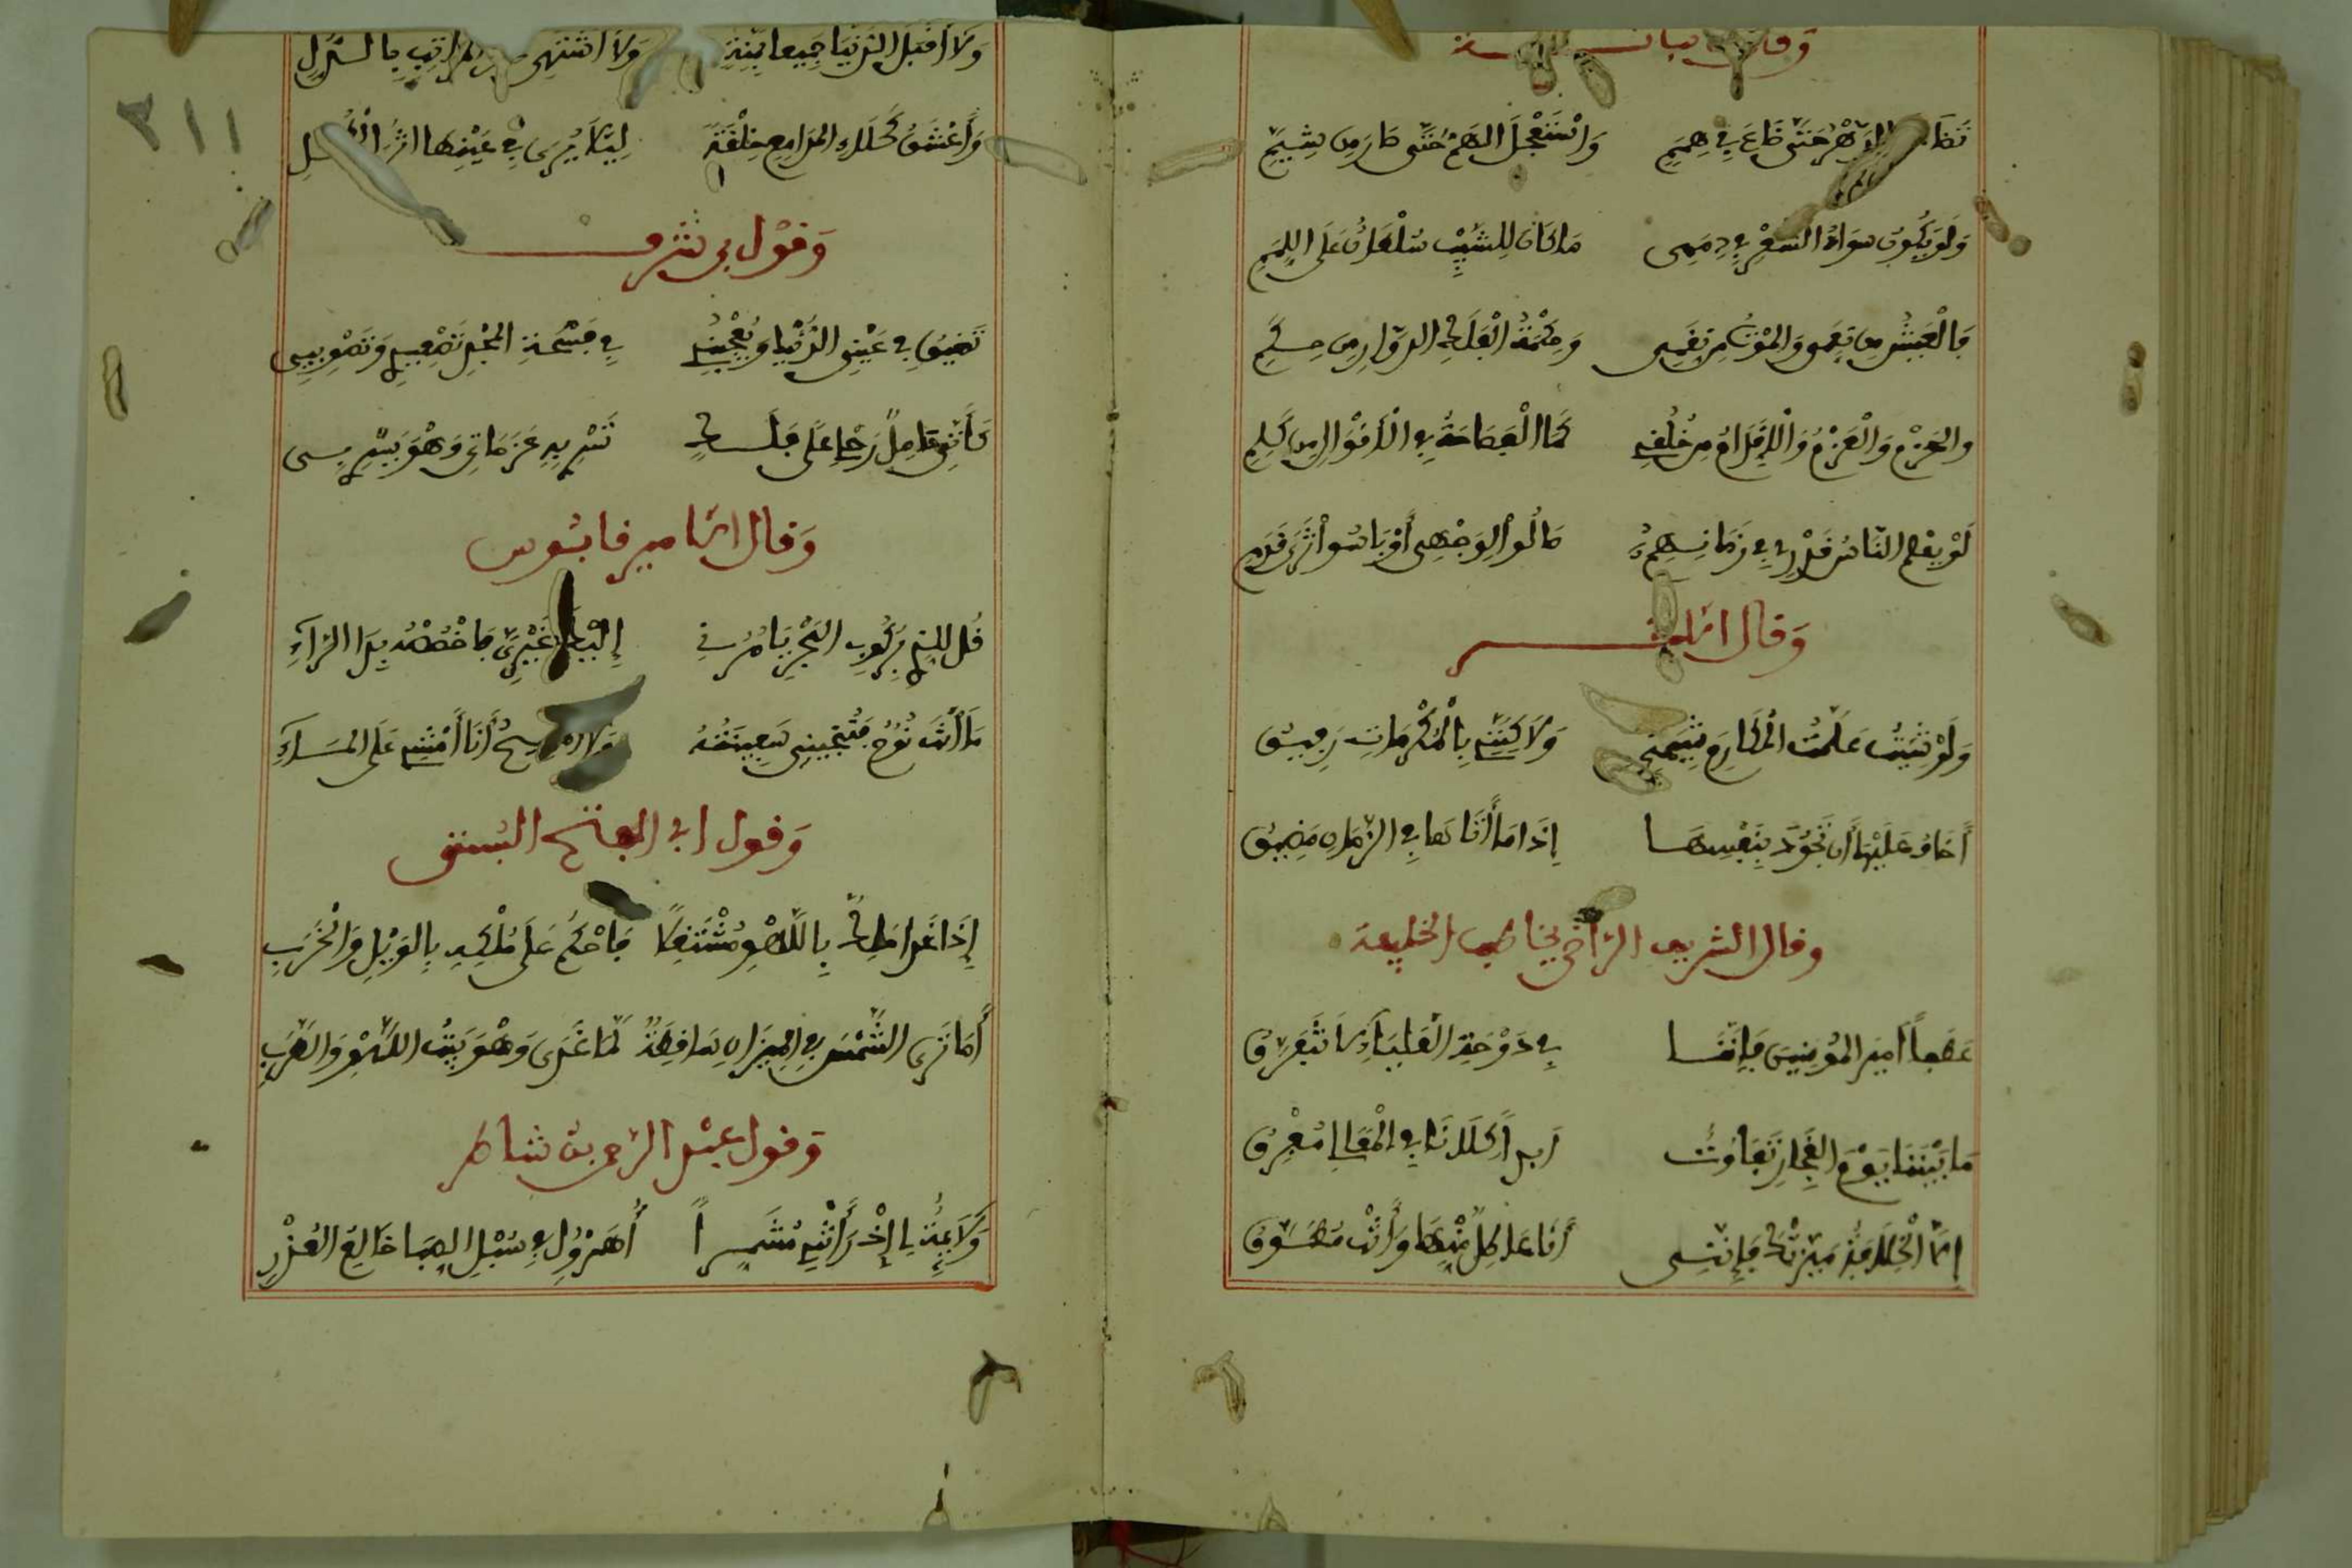 وقال ابن نباتة
تضاءل الدهر حتى ضاع في هممي    واستفحل الهم حتى صار من شيمي
ولو يكون سواد الشعر في ذممي    ما كان للشيب سلطان على اللمم
فالعيش من نعمي والموت من نقمي    وحكمة الفلك الدوار من حكمي
والحزم والعزم والإقدام من خلقي    كما الفصاحة في الأقوال من كلمي
لو يفهم الناس قدري في زمانهم    مالوا لوجهي أو باسوا ثرى قدمي
وقال
ولو شئت علمت المكارم شيمتي    ولكنني بالمكرمات رفيق
أخاف عليها أن تجود بنفسها    إذا ما أتاها في الزمان مضيق
وقال الشريف الرضي يخاطب الخليفة
عطفا أمير المؤمنين فإننا    في دوحة العلياء لا نتفرق
ما بيننا يوم الفخار تفاوت    أبدا كلانا في المعالي معرق
إلا الخلافة ميزتك فإنني    أنا عاطل منها وأنت مطوق
ولا أقبل الدنيا جميعا بمنة    ولا أشتهي المراتب بالذل
وأعشق كحلاء المدامع خلقة    ليلا يرى في عينها أثر الكحل
وقول بن شرف
تضيق في عيني الدنيا ويعجبني    في فسحة المجد تصعيدي وتصويبي
كأنني حامل رحلي على فلك    تسري به عزماتي وهو يسري بي
وقال الأمير قابوس
قل للذي بركوب البحر يأمرني    إليك غيري فاخصصه بذا الراء
ما أنت نوح فتنجيني سفينته    ولا المسيح أنا أمشي على الماء
وقول ابي الفتح البستي
إذا غدا ملك باللهو مشتغلا    فاحكم على ملكه بالويل والخرب
أما ترى الشمس في الميزان ساقطة    لما غدى وهو بيت اللهو والطرب
وقول عبد الرحمن شاطر
ولائمة لي إذ رأتني مشمرا    أهرول في سبل الصبا خالع العذر
٣١١